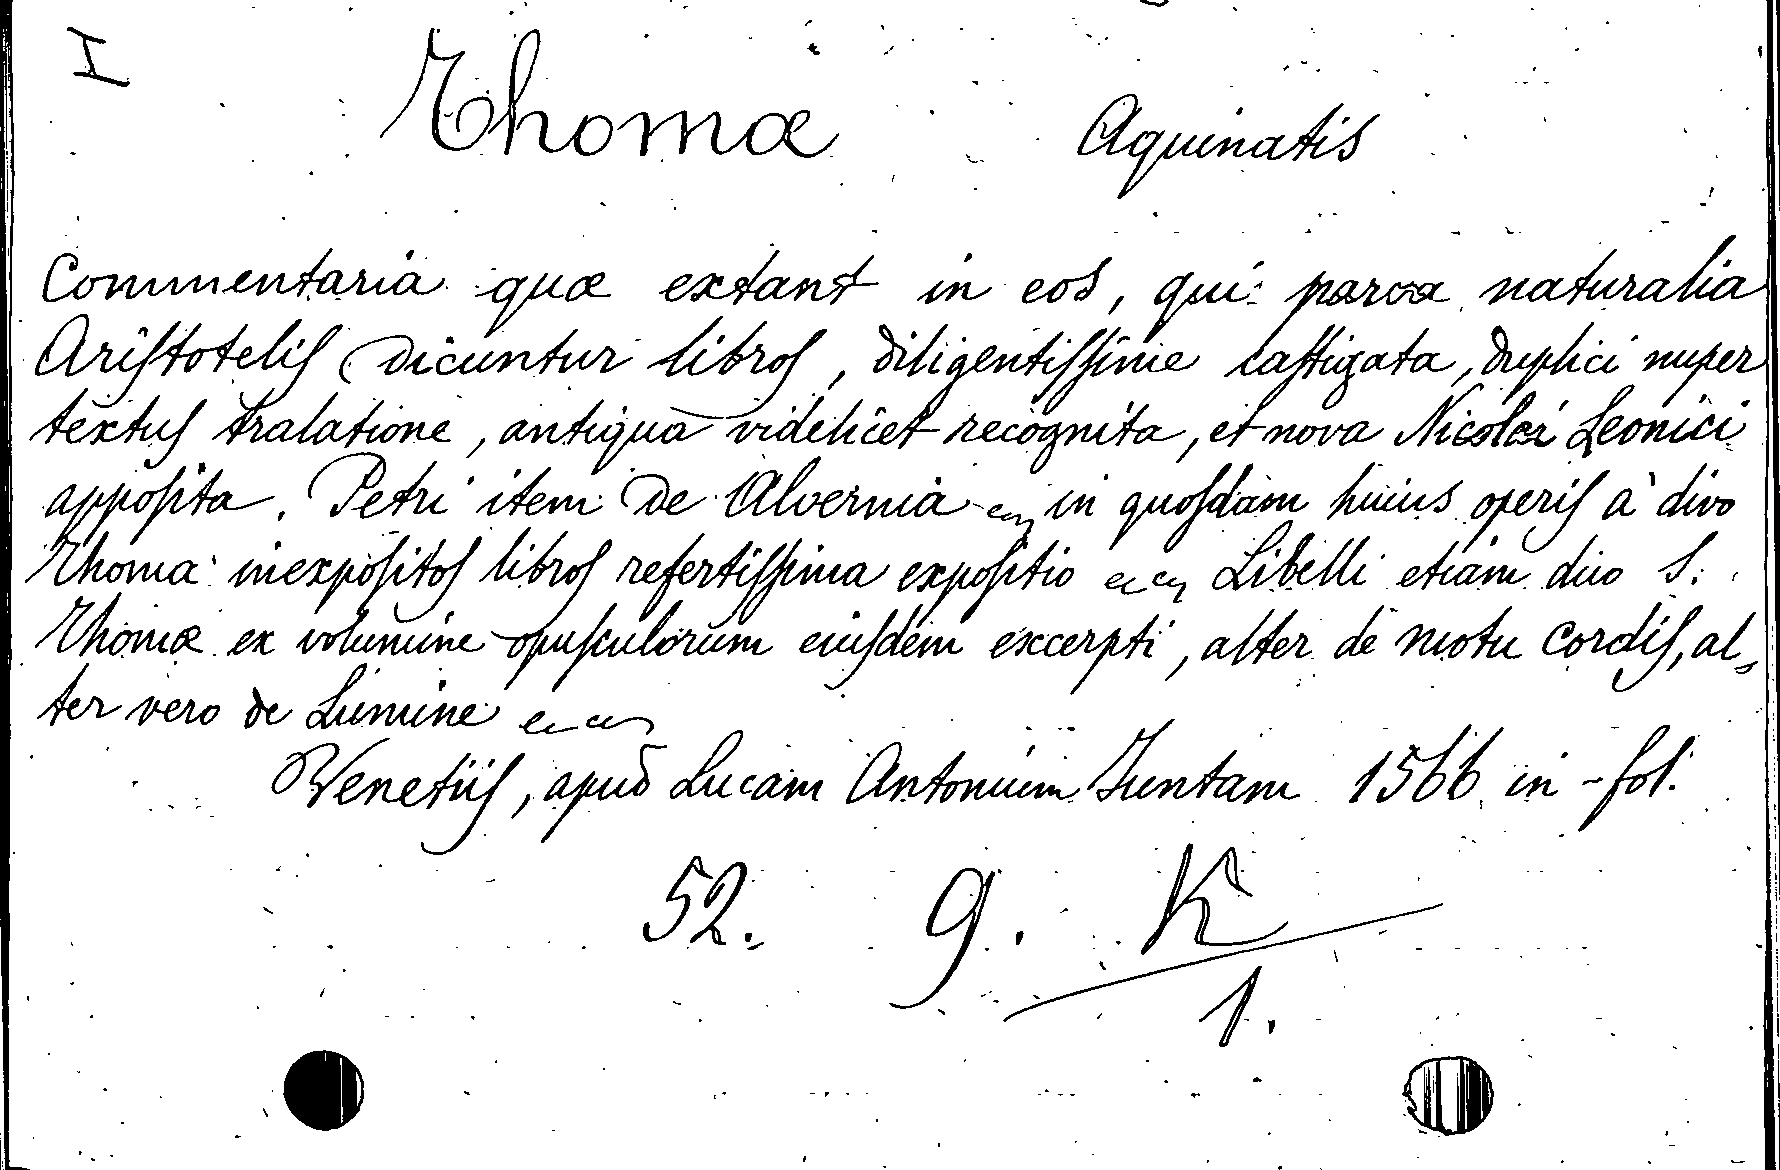 I
Thomæ Aquinatis
Commentaria quæ extant in eos, qui parva naturalia
Ariſtoteliſ dicuntur libroſ, diligentiſſime caſtigata, duplici nuper
textuſ tralatione, antiqua videlicet recognita, et nova Nicolai Leonici
appoſita. Petri item de Alvernia in quoſdam huius operiſ à divo
Thoma inexpoſitoſ libroſ refertiſſima expoſitio Libelli etiam duo S.
Thomæ ex volumine opuſculorum eiuſdem excerpti, alter de motu cordiſ, al„
ter vero de Lumine
Venetiiſ, apud Lucam Antonium Juntam 1566 in-fol.
52. 9. K
1.